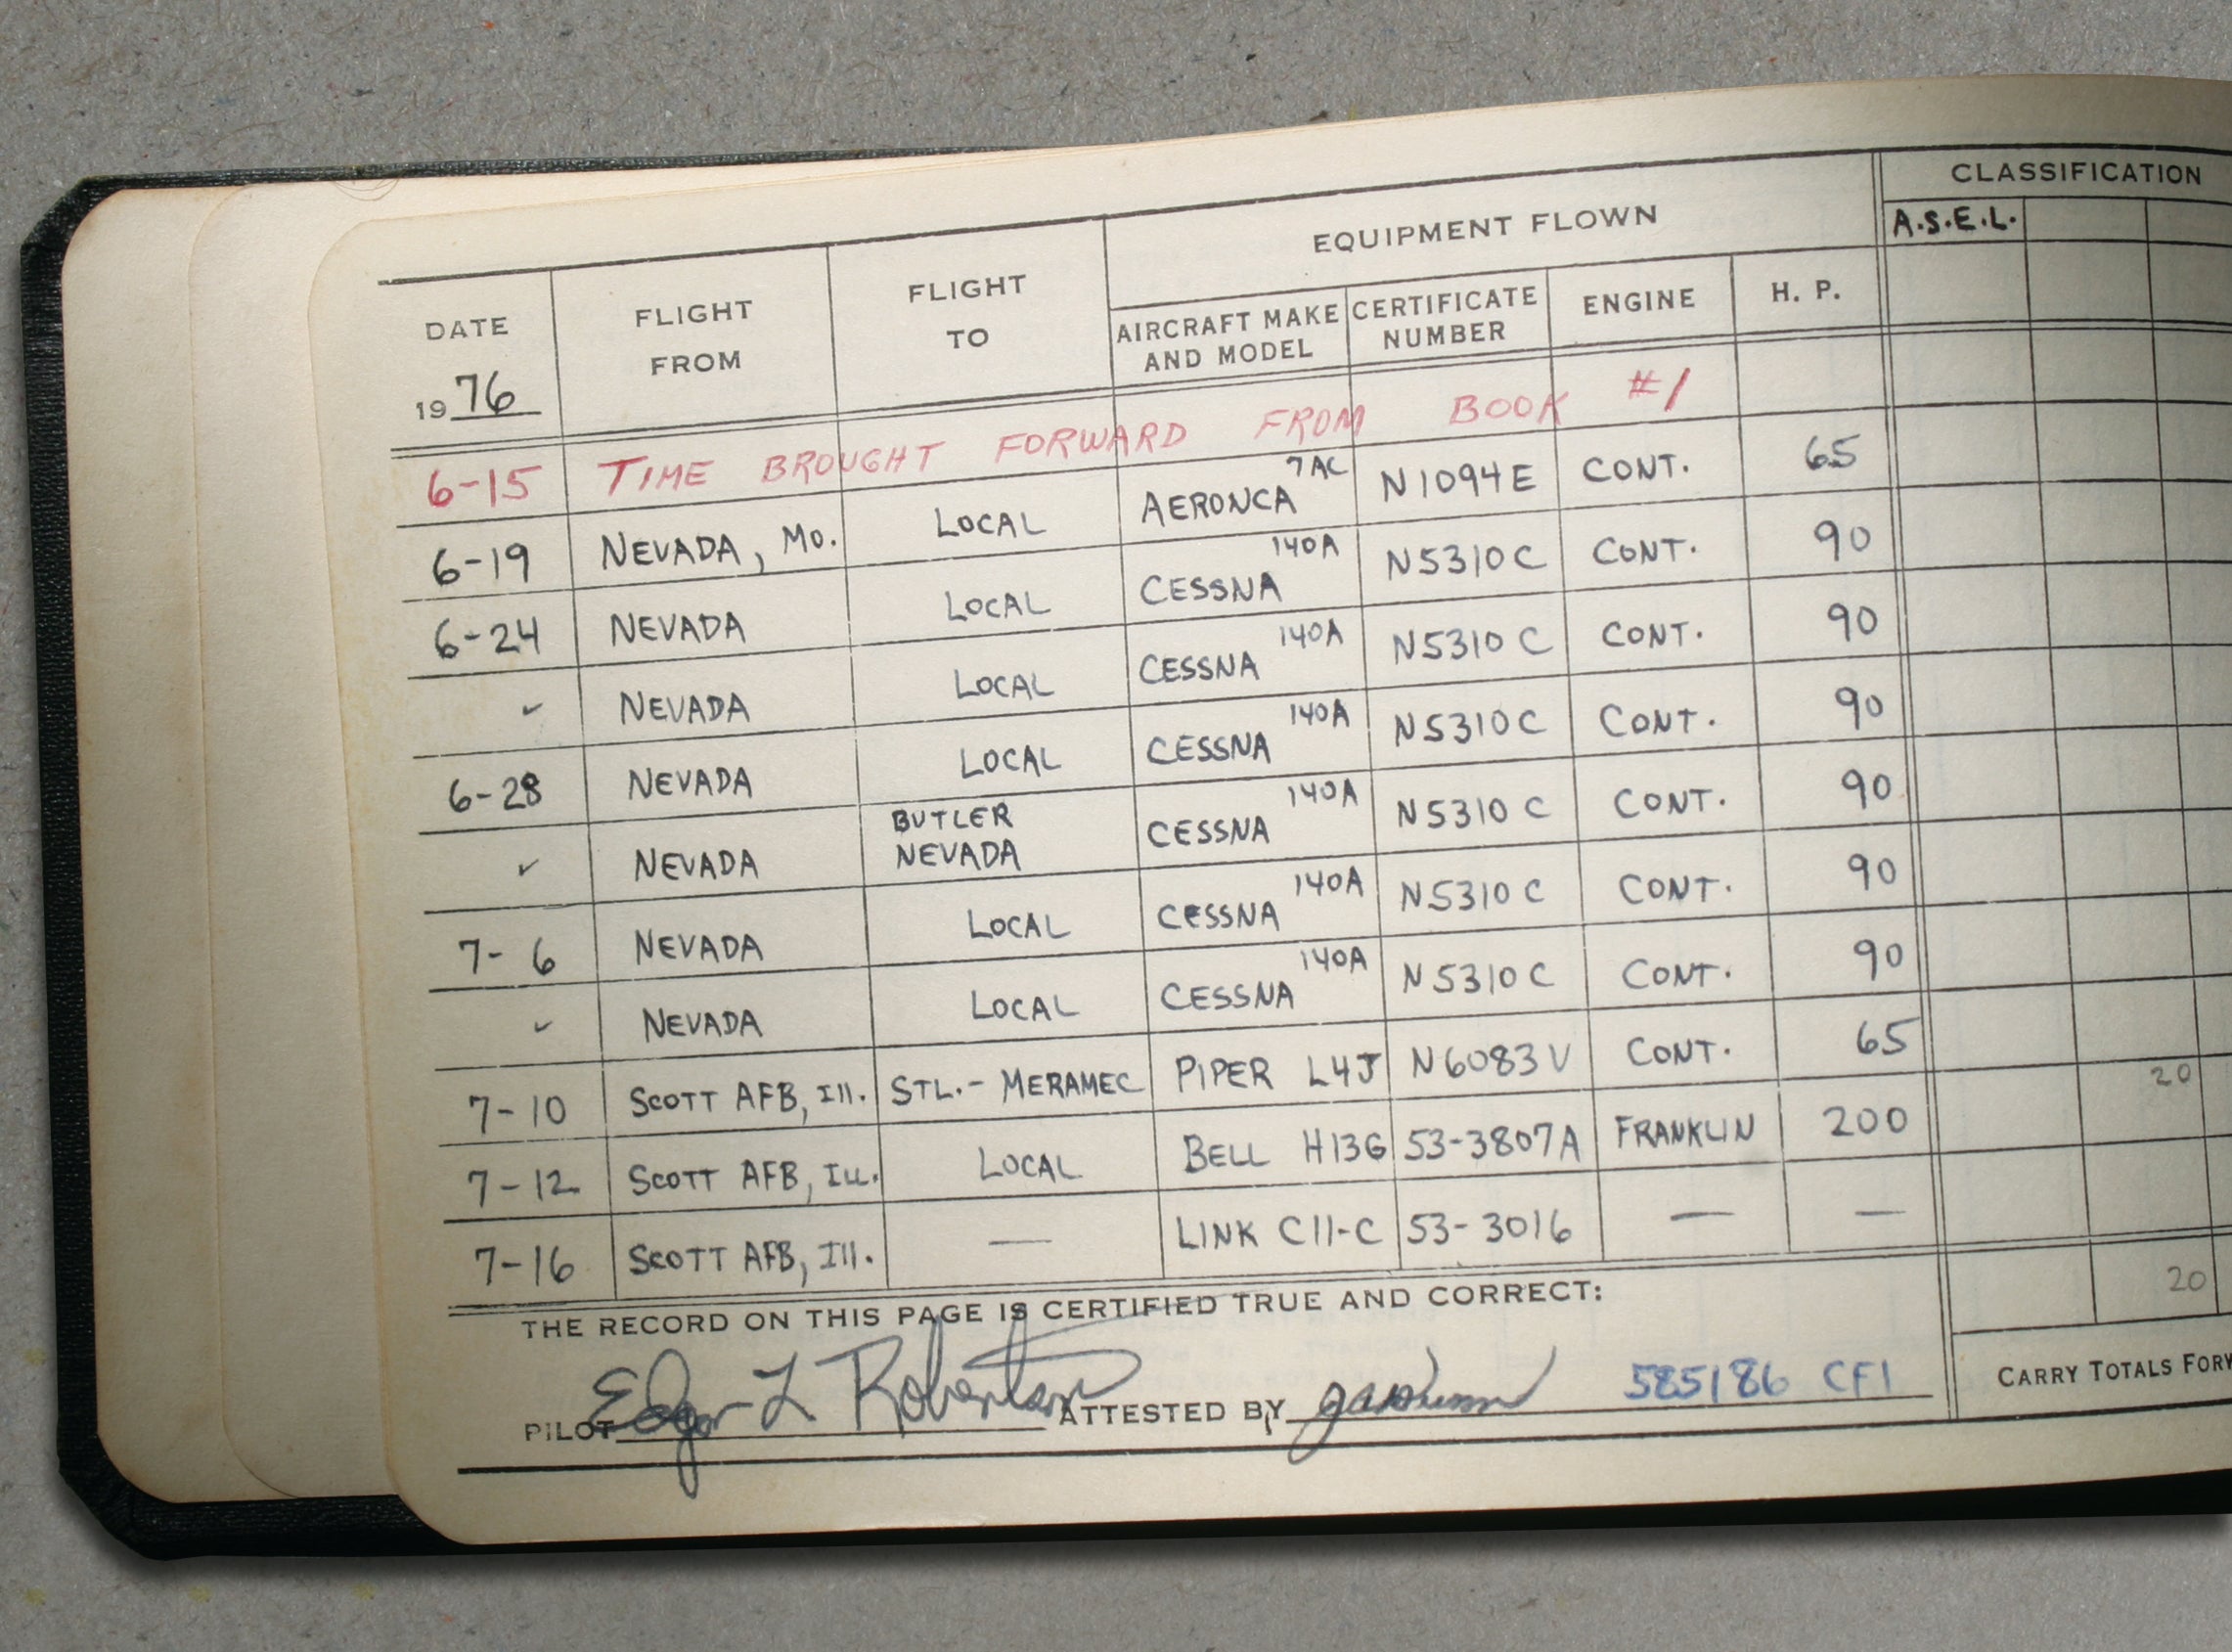 CLASSIFICATION
EQUIPMENT FLOWN
A.S.E.L.
DATE
1976
FLIGHT
FROM
FLIGHT
TO
AIRCRAFT MAKE
AND MODEL
CERTIFICATE
NUMBER
ENGINE
H. P.
6-15 TIME BROUGHT FORWARD FROM BOOK #1
6-19 NEVADA, MO. LOCAL AERONCA 7AC N1094E CONT. 65
6-24 NEVADA LOCAL CESSNA 140A N5310C CONT. 90
✓ NEVADA LOCAL CESSNA 140A N5310C CONT. 90
6-28 NEVADA LOCAL CESSNA 140A N5310C CONT. 90
✓ NEVADA BUTLER NEVADA CESSNA 140A N5310C CONT. 90
7-6 NEVADA LOCAL CESSNA 140A N5310C CONT. 90
✓ NEVADA LOCAL CESSNA 140A N5310C CONT. 90
7-10 SCOTT AFB, Ill. STL.- MERAMEC PIPER L4J N6083V CONT. 65
7-12 SCOTT AFB, ILL. LOCAL BELL H13G 53-3807A FRANKLIN 200 20
7-16 SCOTT AFB, Ill. — LINK C11-C 53-3016 — —
20
THE RECORD ON THIS PAGE IS CERTIFIED TRUE AND CORRECT:
PILOT Edgar L Robertson ATTESTED BY 585186 CFI
CARRY TOTALS FORW